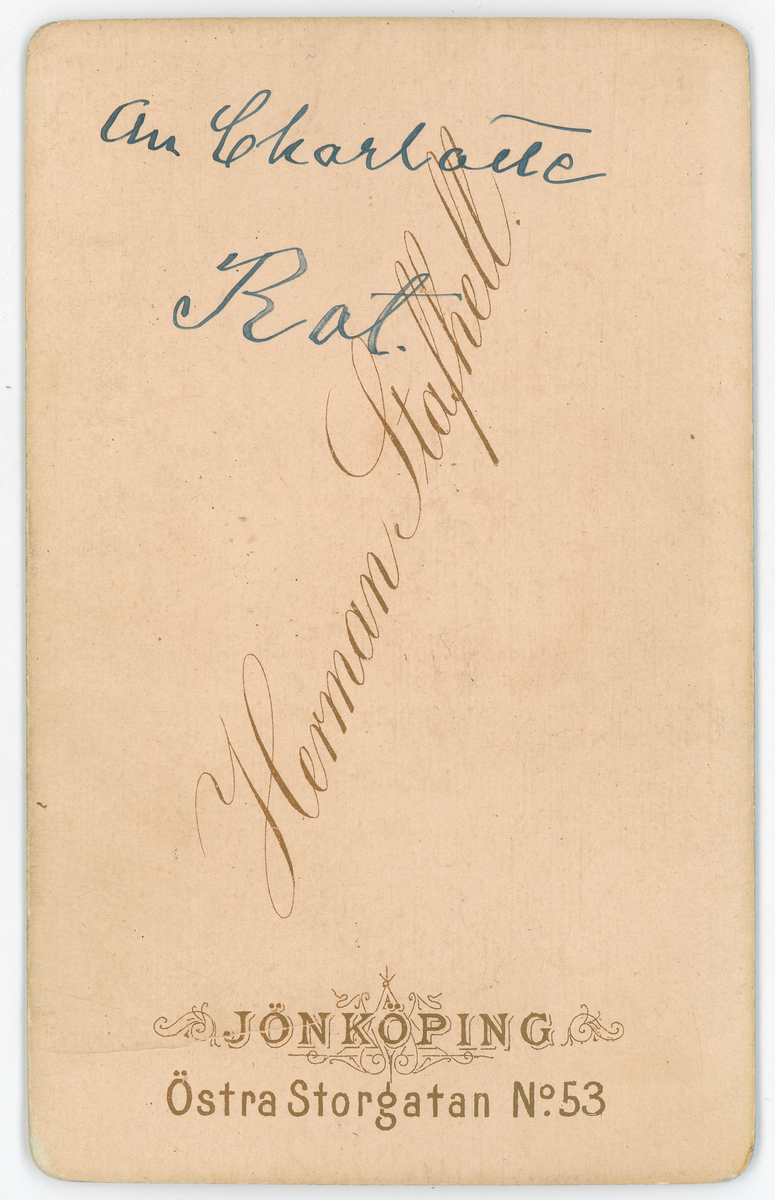 An Charlotte
Rat.
Herman Stafhell.
JÖNKÖPING
Östra Storgatan No. 53